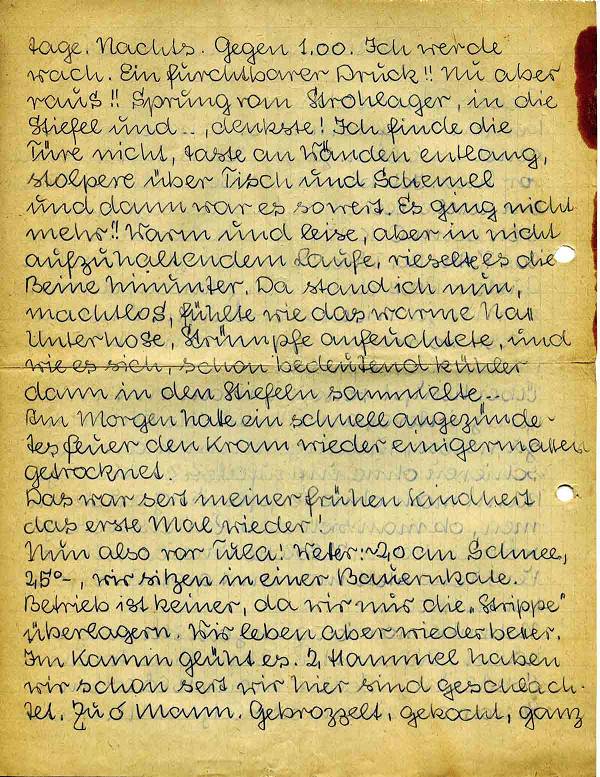 tage. Nachts. Gegen 1.00. Ich werde
wach. Ein furchtbarer Druck!! Nu aber
raus!! Sprung vom Strohlager, in die
Stiefel und .., denkste! Ich finde die
Türe nicht, taste an Wänden entlang,
stolpere über Tisch und Schemel
und dann war es soweit. Es ging nicht
mehr!! Warm und leise, aber in nicht
aufzuhaltendem Laufe, rieselte es die
Beine hinunter. Da stand ich nun,
machtlos, fühlte wie das warme Naß
Unterhose, Strümpfe anfeuchtete, und
wie es sich, schon bedeutend kühler
dann in den Stiefeln sammelte..
Am Morgen hate ein schnell angezünde-
tes Feuer den Kram wieder einigermaßen
getrocknet.
Das war seit meiner frühen Kindheit
das erste Mal wieder!
Nun also vor Tula! Weter: ~20 cm Schnee,
25°-, wir sitzen in einer Bauernkate.
Betrieb ist keiner, da wir nur die „Strippe"
überlagern. Wir leben aber wieder beßer.
Im Kamin glüht es. 2 Hammel haben
wir schon seit wir hier sind geschlach-
tet. Zu 6 Mann. Gebrozzelt, gekocht, ganz